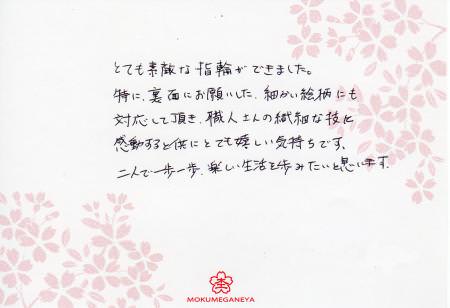 とても素敵な指輪ができました。
特に、裏面にお願いした、細かい絵柄にも
対応して頂き、職人さんの繊細な技に
感動すると供にとても嬉しい気持ちです。
二人で一歩一歩、楽しい生活を歩みたいと思います。
MOKUMEGANEYA